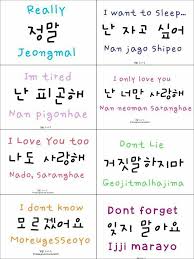 Really
정말
Jeongmal
I want to Sleep...
난 자고 싶어
Nan jago Shipeo
Im tired
난 피곤해
Nan pigonhae
I only love you
난 너만 사랑해
Nan neoman Saranghae
I Love You too
나도 사랑해
Nado, Saranghae
Dont Lie
거짓말하지마
Geojitmalhajima
I dont know
모르겠어요
Moreugesseoyo
Dont forget
잊지 말아요
Ijji marayo